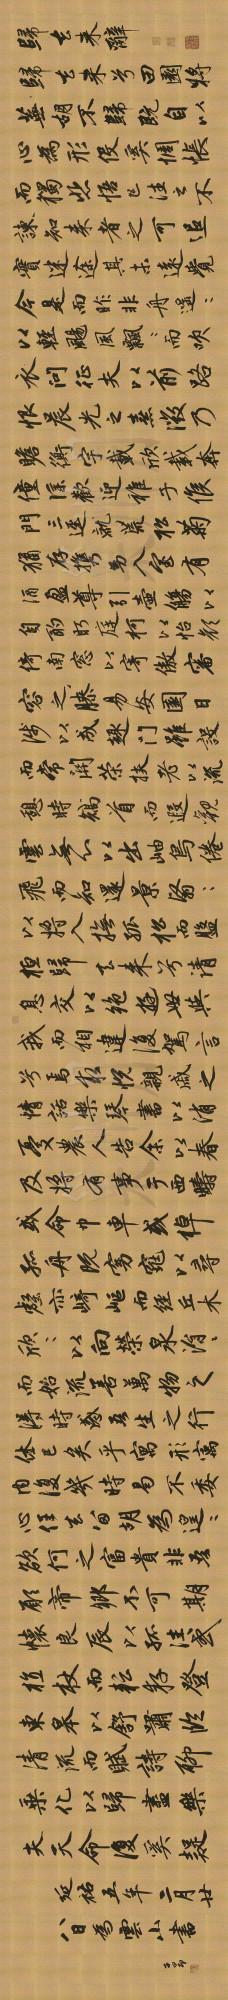 歸去来辭
歸去来兮田園將
蕪胡不歸既自以
心為形役奚惆悵
而獨悲悟已往之不
諫知来者之可追
實迷途其未遠覺
今是而昨非舟遥〻
以輕颺風飄〻而吹
衣問征夫以前路
恨晨光之熹微乃
瞻衡宇載欣載奔
僮僕歡迎稚子候
門三逕就荒松菊
猶存攜幼入室有
酒盈尊引壺觴以
自酌眄庭柯以怡顔
倚南窓以寄傲審
容之膝易安園日
涉以成趣門雖設
而常関策扶老以流
憩時矯首而遐觀
雲無心以出岫鳥倦
飛而知還景翳〻
以將入撫孤松而盤
桓歸去来兮請
息交以絶遊世與
我而相違復駕言
兮焉求悦親戚之
情話樂琴書以消
憂農人告余以春
及將有事于西疇
或命巾車或棹
孤舟既窈窕以尋
壑亦崎嶇而經丘木
欣〻以向榮泉涓〻
而始流善萬物之
得時感吾生之行
休已矣乎寓形宇
内復幾時曷不委
心任去留胡為遑〻
欲何之富貴非吾
願帝鄉不可期
懷良辰以孤往或
植杖而耘耔登
東皋以舒嘯臨
清流而賦詩聊
乘化以歸盡樂
夫天命復奚疑
延祐五年二月廿
八日為雲山書
子昂